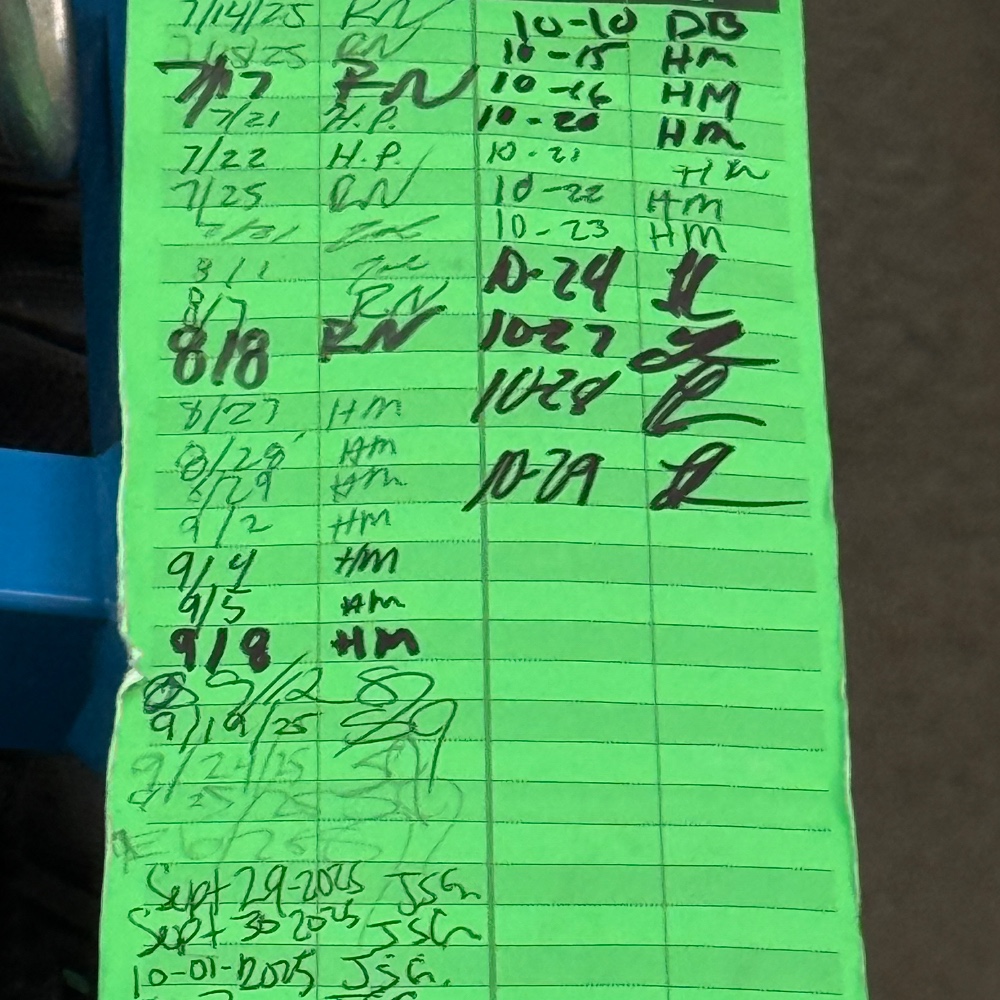 7/14/25 RN
7/15/25 RN
7/17 RN
7/21 H.P.
7/22 H.P.
7/25 RN
7/31
8/1
8/7 R.N
8/8 RN
8/27 HM
8/28 HM
8/29 HM
9/2 HM
9/4 HM
9/5 HM
9/8 HM
9/12
9/19/25
9/24/25
Sept 29-2025 JSG
Sept 30 2025 JSG
10-01-2025 JSG.
10-10 DB
10-15 HM
10-16 HM
10-20 HM
10-21 HM
10-22 HM
10-23 HM
10-24
10-27
10-28
10-29